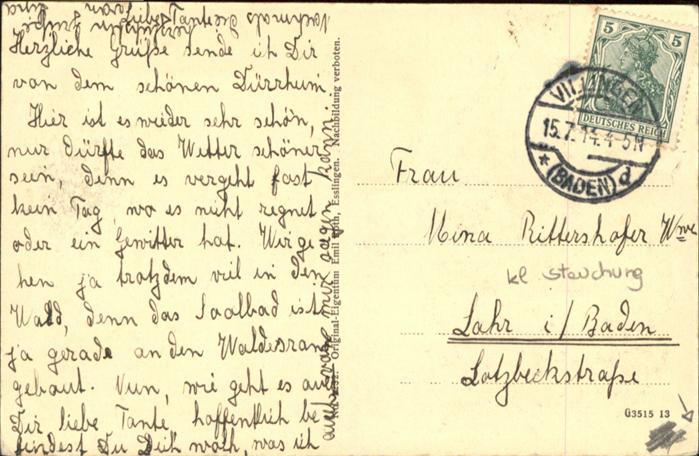 Liebe Tante!
Herzliche Grüße sende ich Dir
von dem schönen Dürrheim
Hier ist es wieder sehr schön,
nur dürfte das Wetter schöner
sein, denn es vergeht fast
kein Tag, wo es nicht regnet
oder ein Gewitter hat. Wir ge-
hen ja trotzdem viel in den
Wald, denn das Soolbad ist
ja gerade an den Waldesrand
gebaut. Nun, wie geht es auch
Dir liebe Tante, hoffentlich be-
findest Du Dich wohl, was ich
auch von mir sagen kann.
Original-Eigentum Emil Esslingen. Nachbildung verboten.
5 5
DEUTSCHES REICH
VILLINGEN
15.7.14.4-5N
* (BADEN) d
Frau
Mina Rittershofer Wwe
kl stauchung
Lahr i/Baden
Lotzbeckstraße
G3515 13